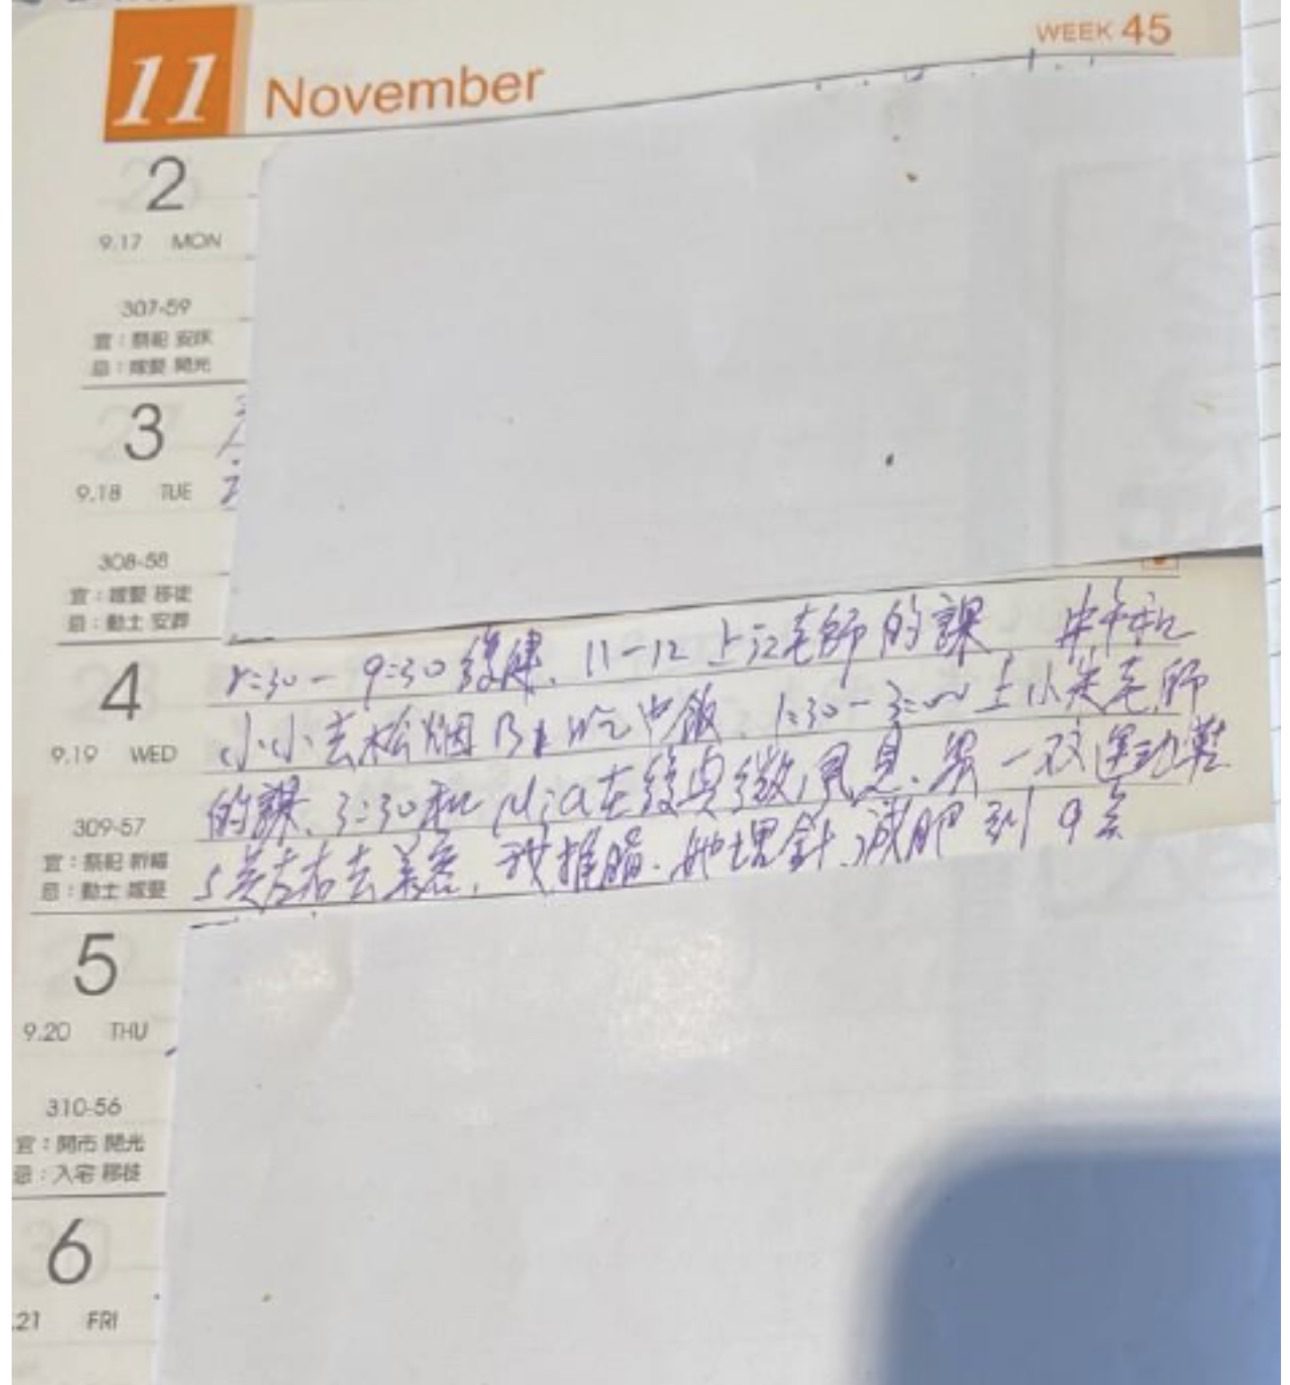 11 November
WEEK 45
2
9.17 MON
307-59
宜：祭祀 安床
忌：嫁娶 開光
3
9.18 TUE
308-58
宜：嫁娶 移徙
忌：動土 安葬
4
9.19 WED
309-57
宜：祭祀 祈福
忌：動土 嫁娶
8:30-9:30復健、11-12上江老師的課 中午和
小小去松烟B1吃中飯、1:30-3:00上小吳老師
的課、3:30和Mia在 微風見、買一双運動鞋
5 左右去美容，我推脂．她埋針、減肥 到9
5
9.20 THU
310-56
宜：開市 開光
忌：入宅 移徙
6
.21 FRI